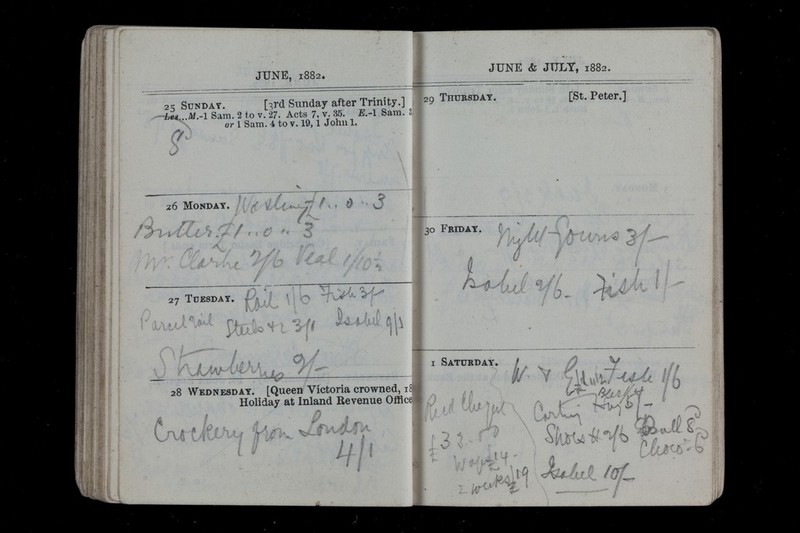 JUNE, 1882.
25 SUNDAY. [3rd Sunday after Trinity.]
Les...M.-1 Sam. 2 to v. 27. Acts 7, v. 35. E.-1 Sam. 3
or 1 Sam. 4 to v. 19, 1 John 1.
26 MONDAY. £1..0..3
Butter £1..0..3
Mr. Clarke 2/6 Veal 1/10½
27 TUESDAY. Rail 1/6 Fish 3/-
Parcel Rail 3/1 Isabel 9/1
Strawberries 2/-
28 WEDNESDAY. [Queen Victoria crowned, 18
Holiday at Inland Revenue Office
Crockery from London
4/1
JUNE & JULY, 1882.
29 THURSDAY. [St. Peter.]
30 FRIDAY. Night Gowns 3/-
Isabel 2/6 - Fish 1/-
1 SATURDAY. W & Edwin Fish 1/6
Recd Cheque Carting Hay 5/-
£32..00 Shoes H 2/6 Ball 8d
Wages £14 - Choco - 6d
2 weeks £19 Isabel 10/-